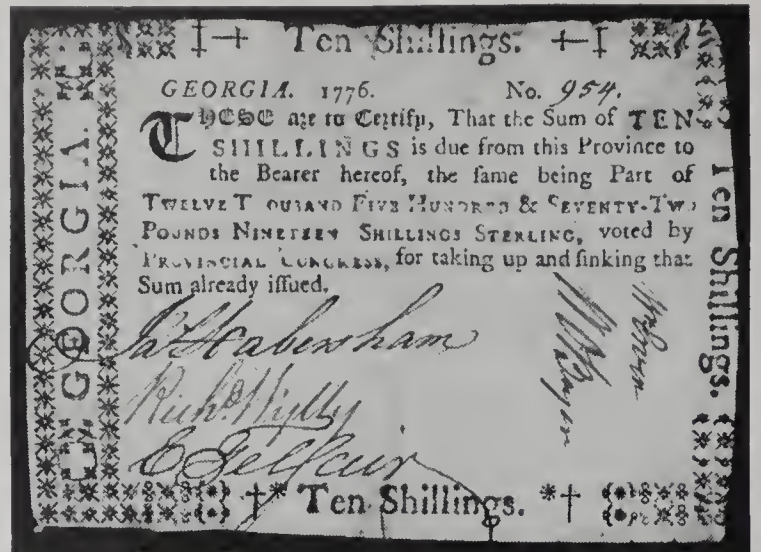 Ten Shillings.
GEORGIA. 1776. No. 954.
THESE are to Certify, That the Sum of TEN
SHILLINGS is due from this Province to
the Bearer hereof, the same being Part of
TWELVE T OUSAND FIVE HUNDRED & SEVENTY-TWO
POUNDS NINETEEN SHILLINGS STERLING, voted by
PROVINCIAL CONGRESS, for taking up and sinking that
Sum already issued.
Jas Habersham
Richd. Wylly
E Telfair
Ten Shillings.
GEORGIA.
Ten Shillings.